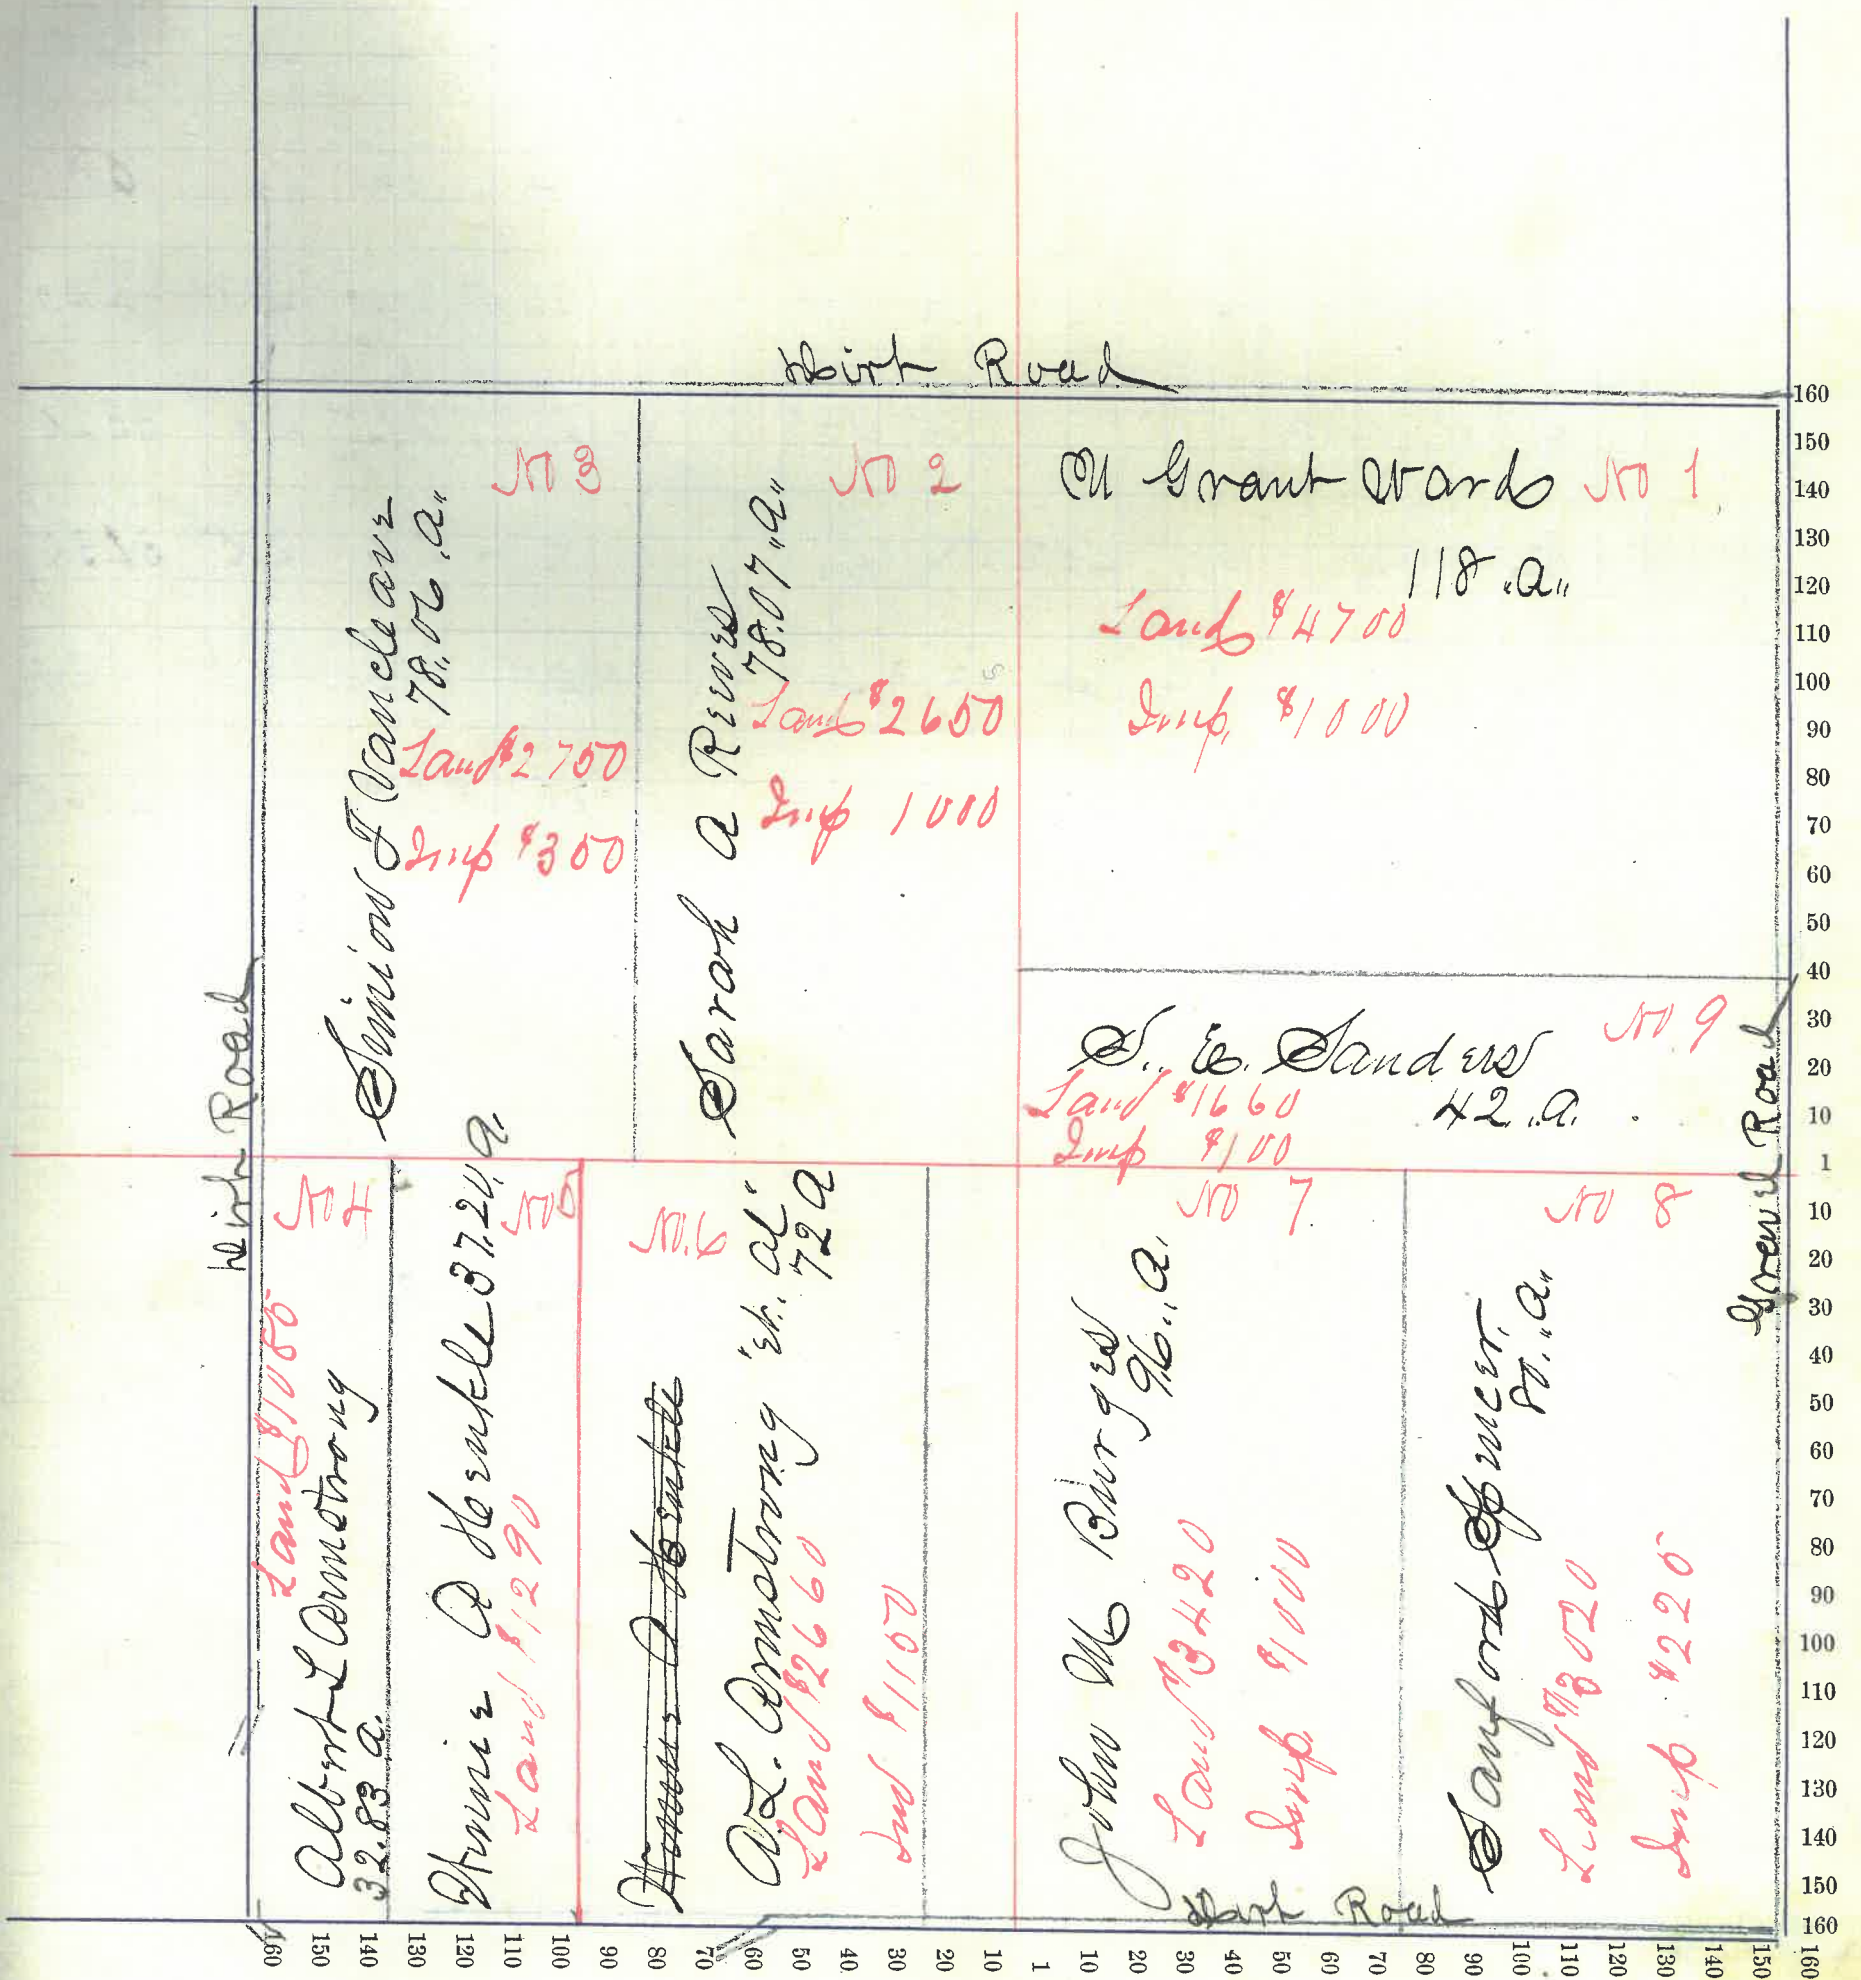 Dirt Road
No 3
Simion F Vancleave
78.06 .a.
Land $2750
Imp $350
No 2
Sarah A Reeves
78.07 .a.
Land $2650
Imp 1000
U Grant Ward No 1
118 .a.
Land $4700
Imp. $1000
S. E. Sanders No 9
42 .a.
Land $1660
Imp $100
Dirt Road
Gravel Road
No 4
Land $1085
Albert L Armstrong
32.83 a.
No 5
A Henkle 37.20 a.
Land $1290
No. 6
A. L. Armstrong "et. al"
72 a
Land $2660
$1150
No 7
John M Burges
96 .a.
Land $3420
Imp $1000
No 8
Sanford Spencer
80 .a.
Land $3020
Imp $225
Dirt Road
160
150
140
130
120
110
100
90
80
70
60
50
40
30
20
10
1
10
20
30
40
50
60
70
80
90
100
110
120
130
140
150
160
160 150 140 130 120 110 100 90 80 70 60 50 40 30 20 10 1 10 20 30 40 50 60 70 80 90 100 110 120 130 140 150 160